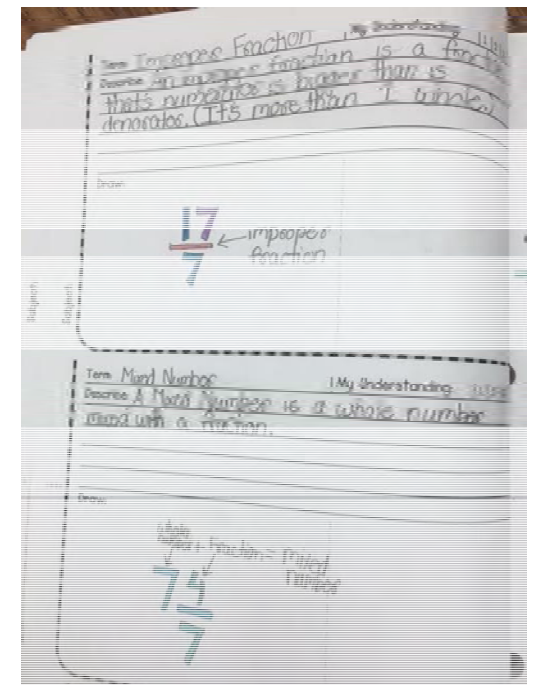 Term Improper Fraction | My Understanding
Describe An improper fraction is a fractio
that's numerator is bigger than is
denorator. (It's more than 1 whole.)
Draw:
17
7
improper
fraction
Subject:
Subject:
Term Mixed Number | My Understanding
Describe A Mixed Number is a whole number
mixed with a fraction.
Draw:
whole
number + Fraction = mixed
number
7 4
7